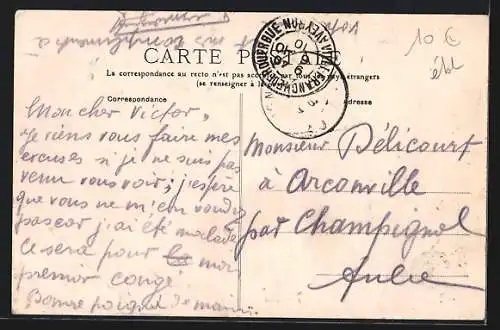 CARTE POSTALE
La correspondance au recto n'est pas pays étrangers
(se renseigner à la
Correspondance
adresse
VILLEFRANCHE DE ROUERGUE AVEYRON
10 €
Mon cher Victor,
Je viens vous faire mes
excuses si je ne suis pas
venu vous voir; j'espère
que vous ne m'en voudrez
pas car j'ai été malade
ce sera pour mon
premier congé
Bonne poignée de main
Monsieur Délicourt
à Arconville
par Champignol
Aube